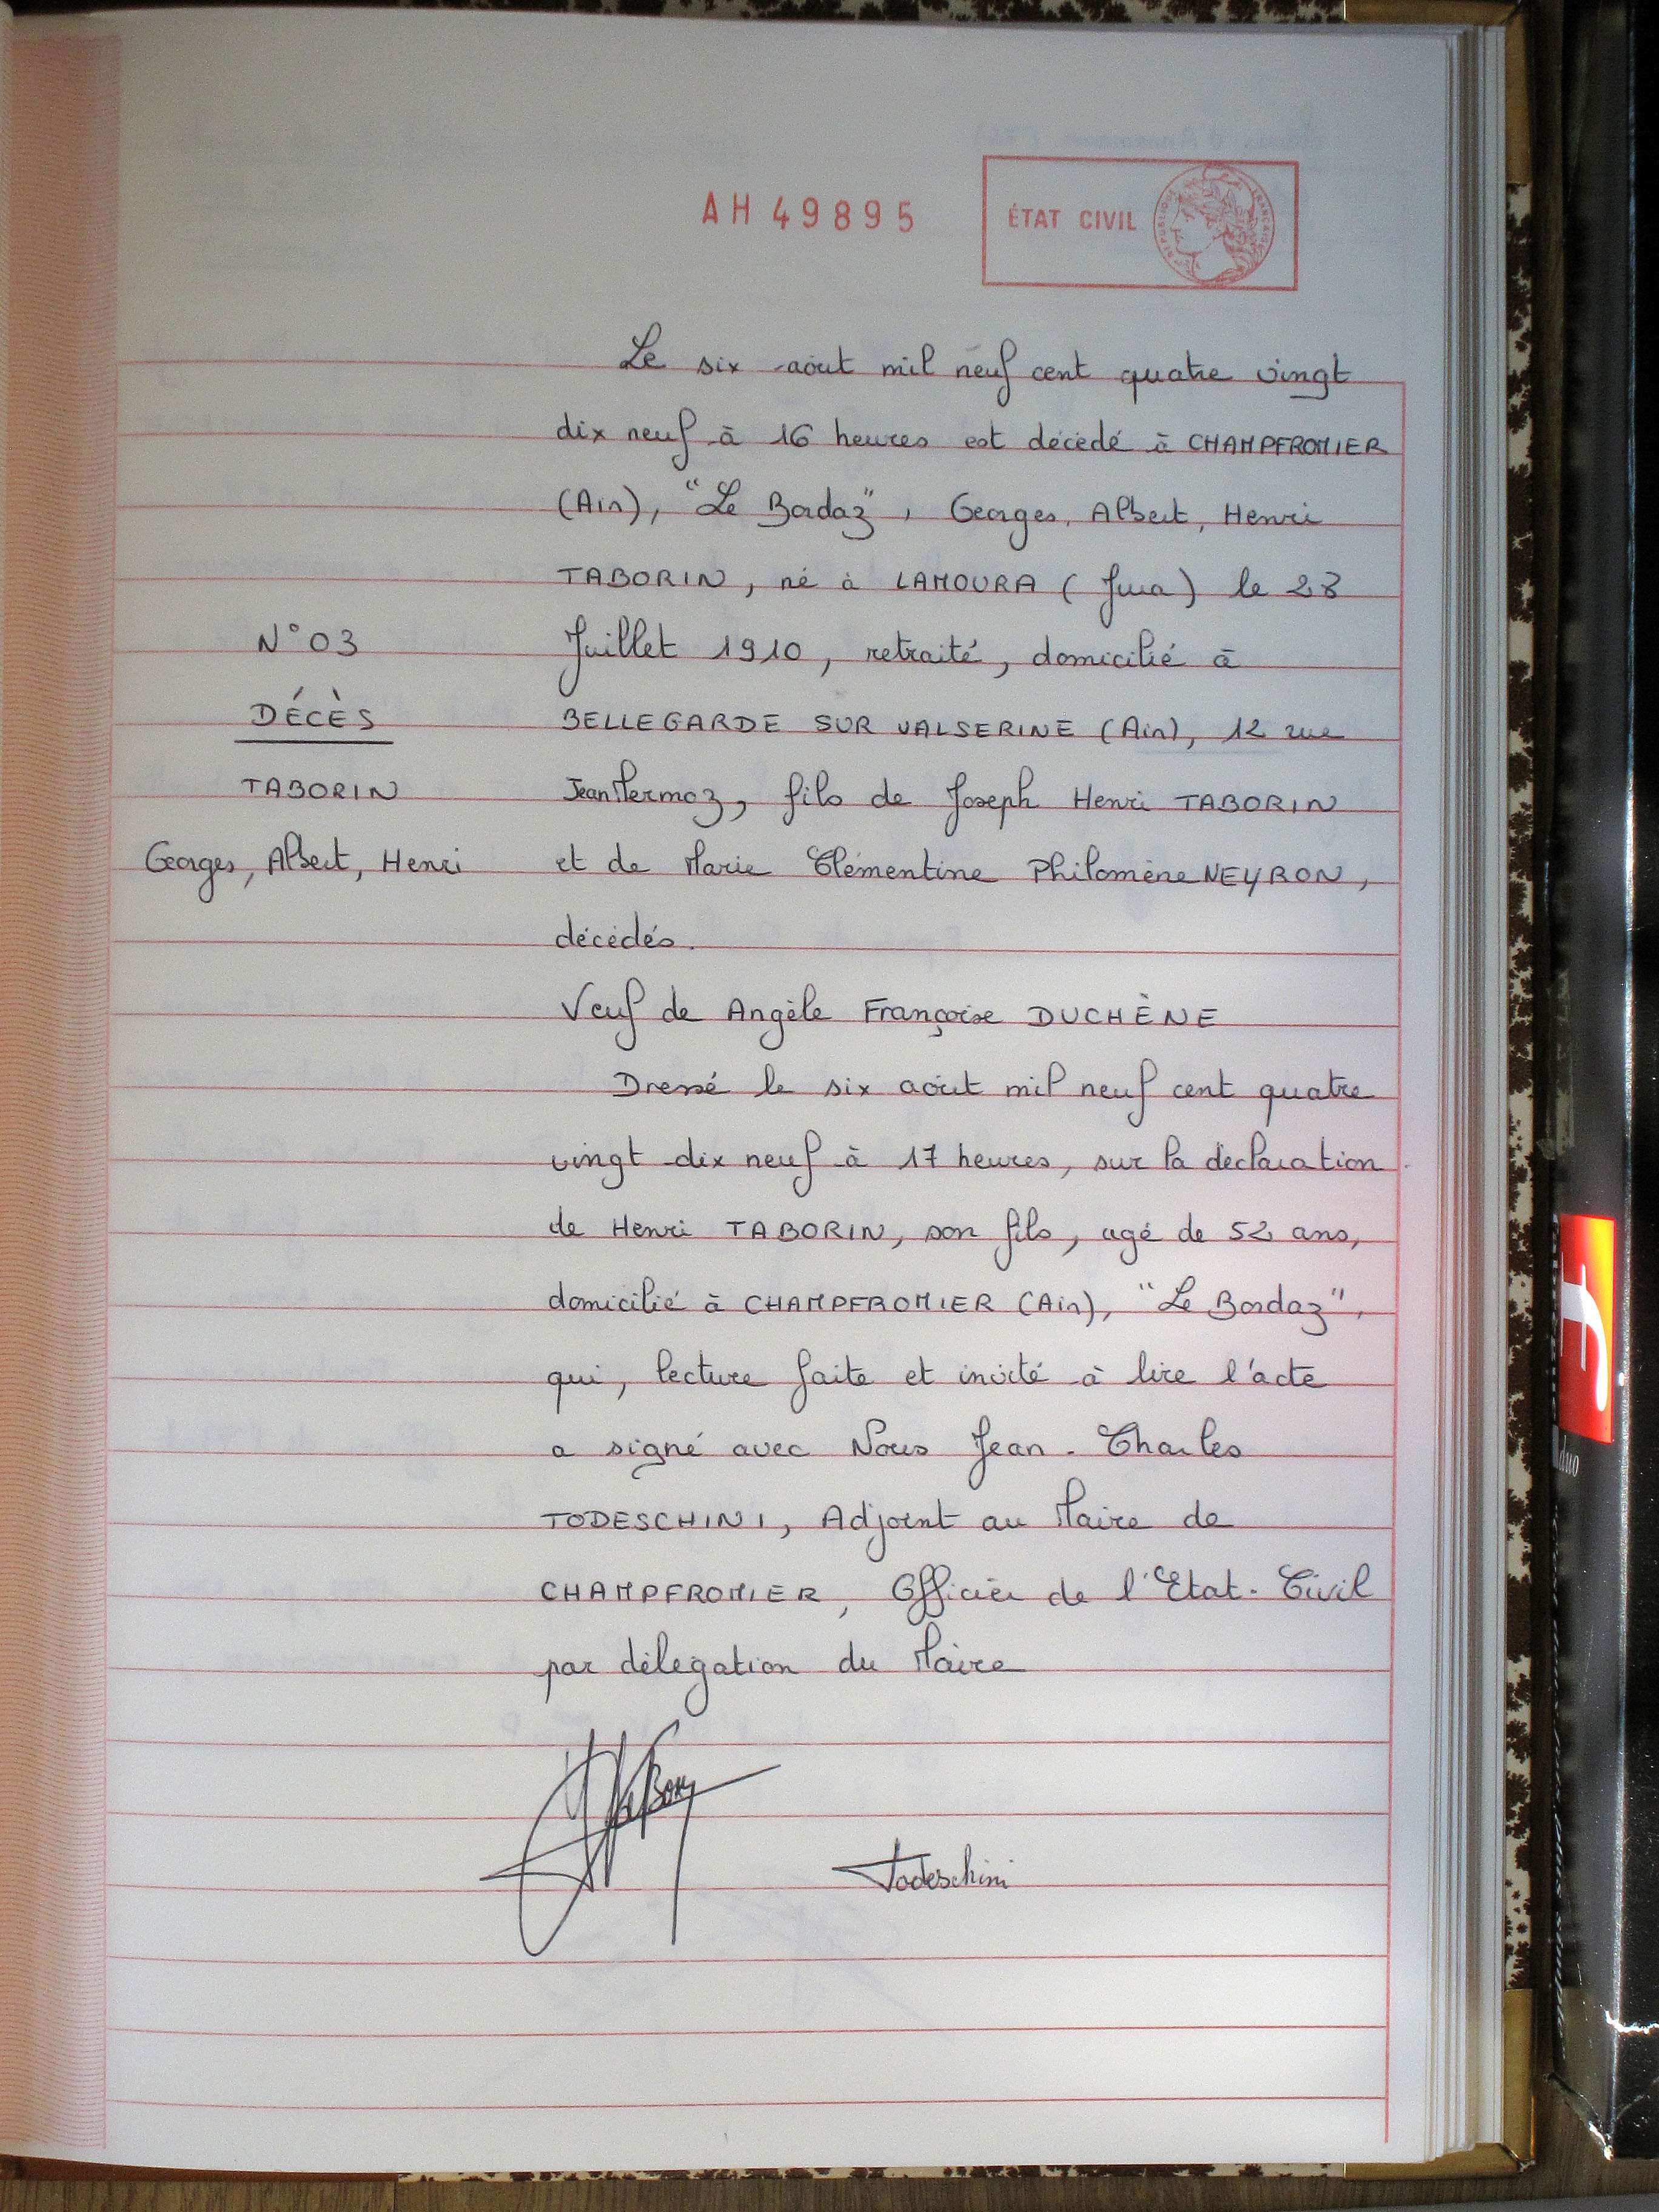 AH 49895
ÉTAT CIVIL
RÉPUBLIQUE FRANÇAISE
Le six août mil neuf cent quatre vingt
dix neuf à 16 heures est décédé à CHAMPFROMIER
(Ain), "Le Bordaz", Georges, Albert, Henri
TABORIN, né à LAMOURA (Jura) le 28
N°03
Juillet 1910, retraité, domicilié à
DÉCÈS
BELLEGARDE SUR VALSERINE (Ain), 12 rue
TABORIN
Jean Mermoz, fils de Joseph Henri TABORIN
Georges, Albert, Henri
et de Marie Clémentine Philomène NEYRON,
décédés.
Veuf de Angèle Françoise DUCHÈNE
Dressé le six août mil neuf cent quatre
vingt dix neuf à 17 heures, sur la déclaration
de Henri TABORIN, son fils, agé de 52 ans,
domicilié à CHAMPFROMIER (Ain), "Le Bordaz",
qui, lecture faite et invité à lire l'acte
a signé avec Nous Jean-Charles
TODESCHINI, Adjoint au Maire de
CHAMPFROMIER, Officier de l'Etat-Civil
par délégation du Maire
Todeschini
duo